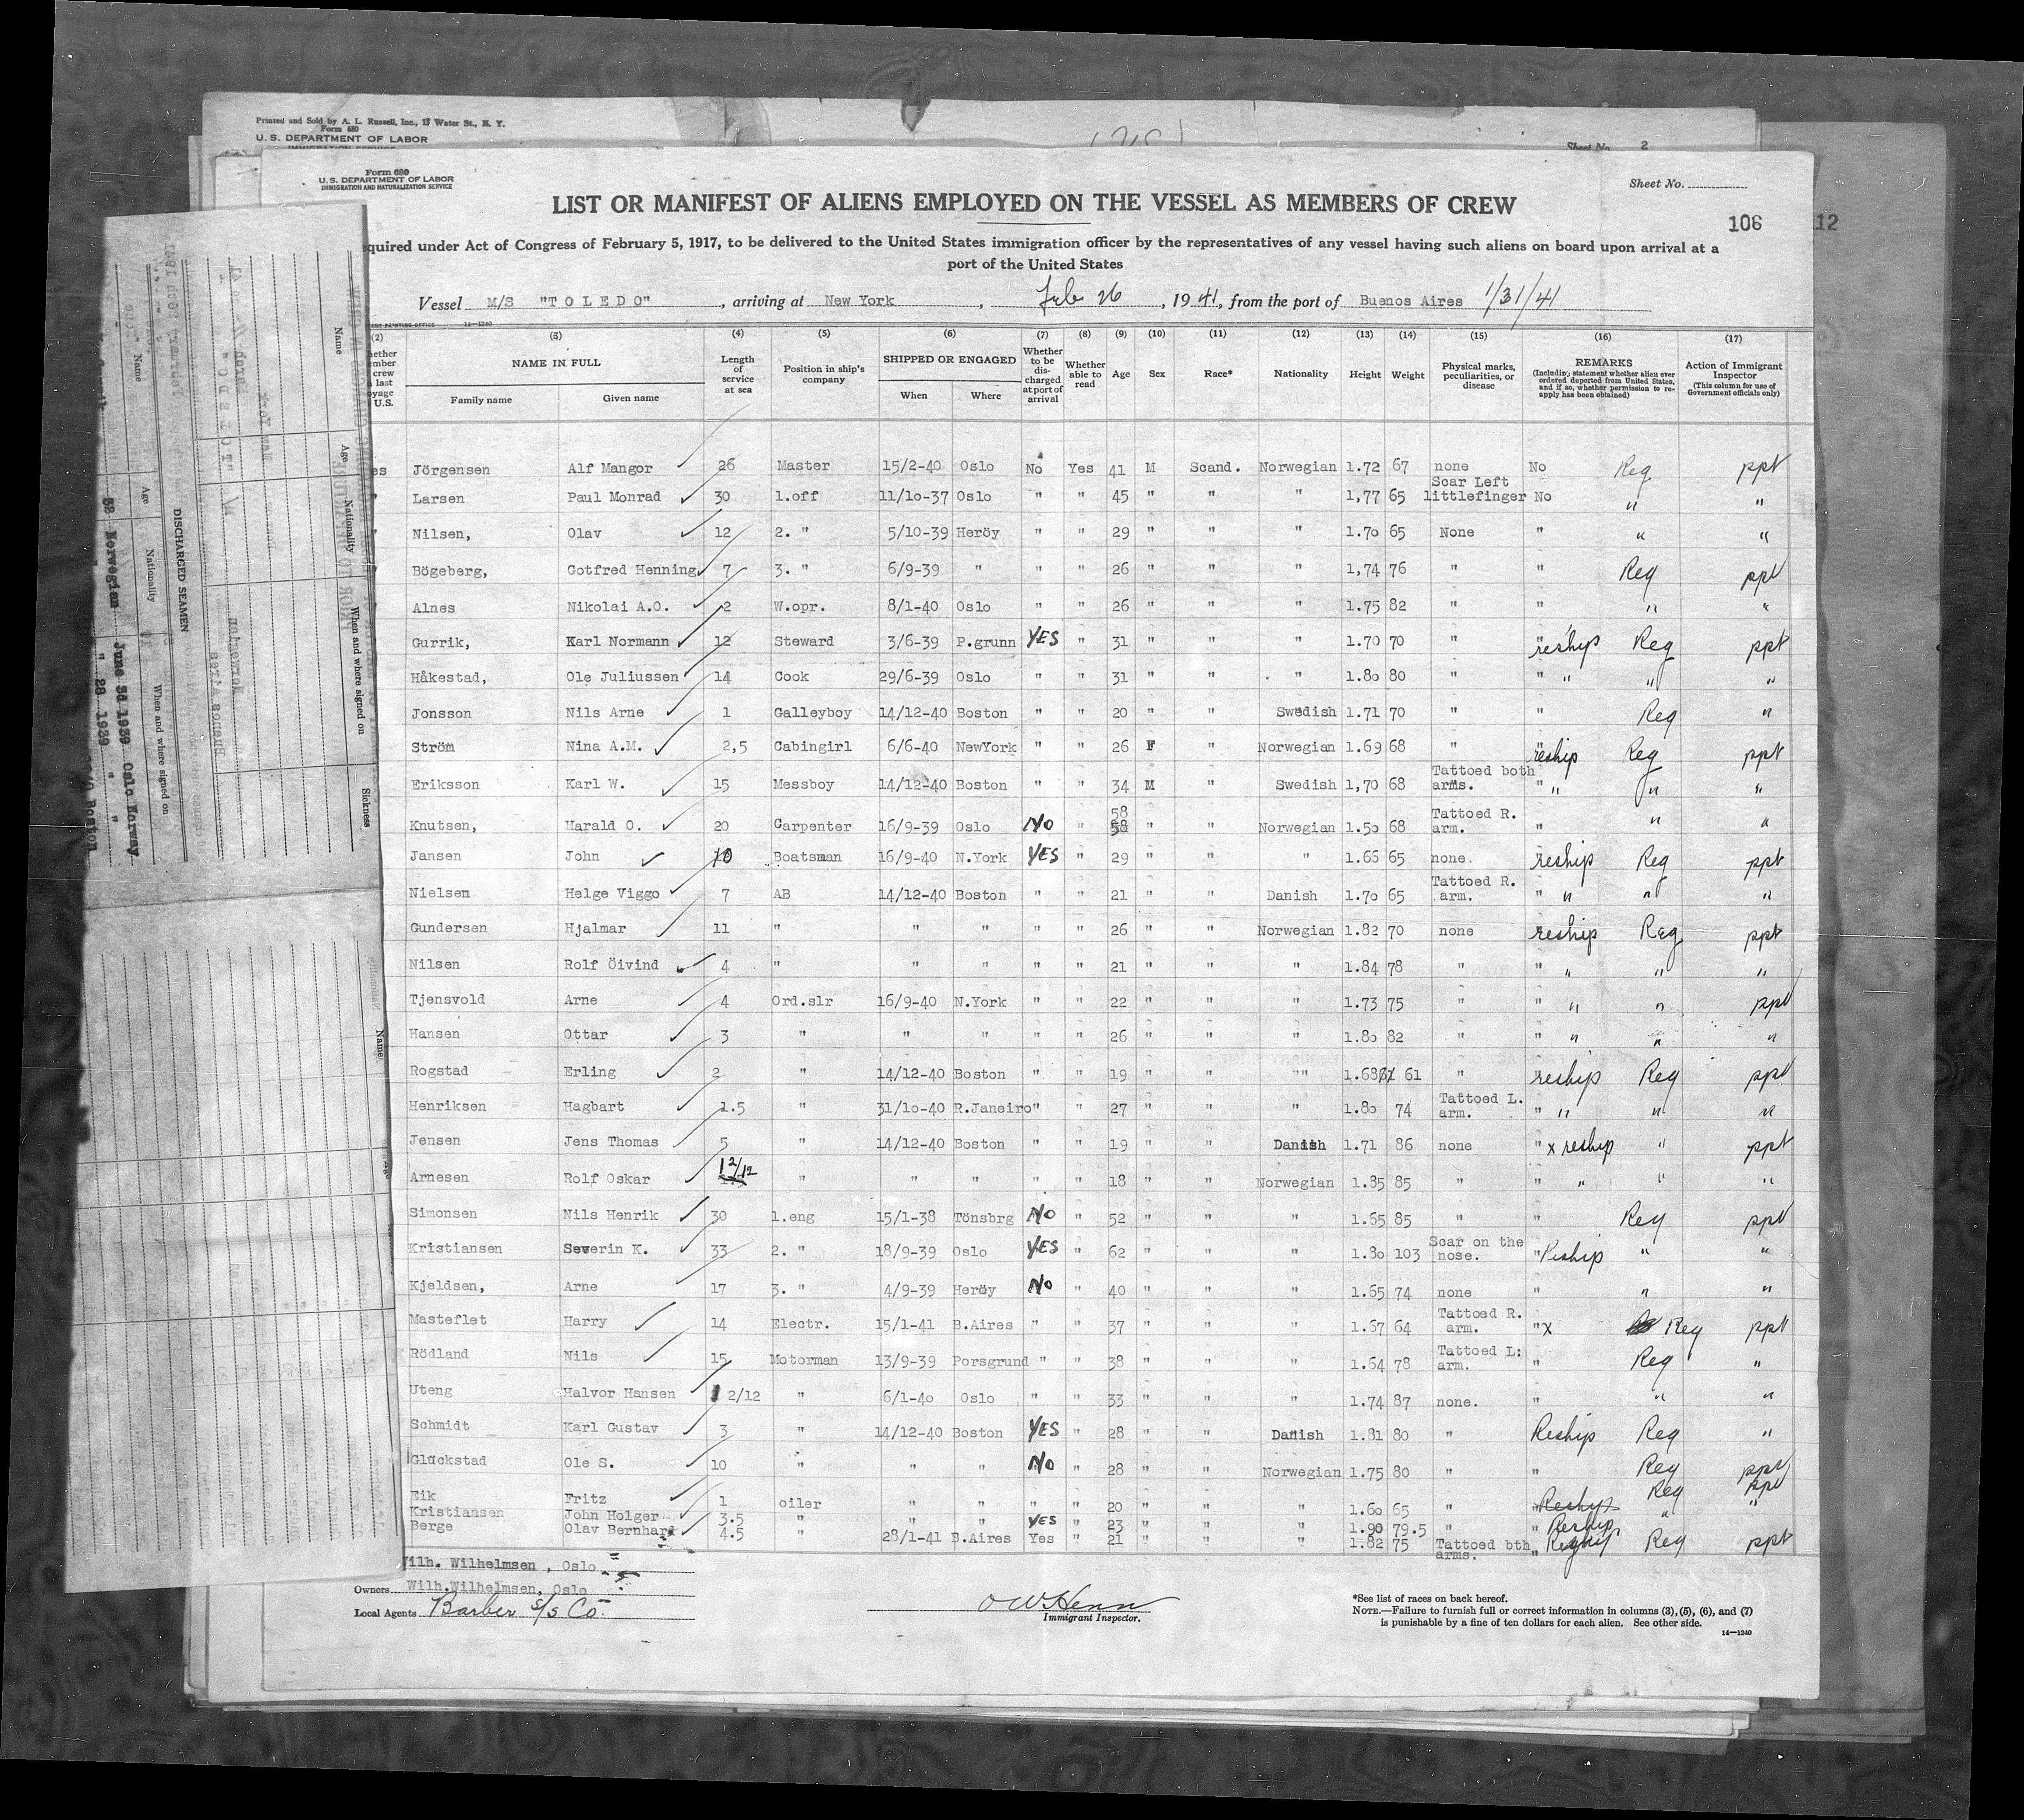 Printed and Sold by A. L. Russell, Inc., 17 Water St., N. Y.
Form 680
U. S. DEPARTMENT OF LABOR
Sheet No. 2
Form 680
U. S. DEPARTMENT OF LABOR
IMMIGRATION AND NATURALIZATION SERVICE
Sheet No.
LIST OR MANIFEST OF ALIENS EMPLOYED ON THE VESSEL AS MEMBERS OF CREW
106 12
quired under Act of Congress of February 5, 1917, to be delivered to the United States immigration officer by the representatives of any vessel having such aliens on board upon arrival at a
port of the United States
Vessel M/S "TOLEDO", arriving at New York, Feb 26, 1941, from the port of Buenos Aires 1/31/41
14-1240
(2) (3) (4) (5) (6) (7) (8) (9) (10) (11) (12) (13) (14) (15) (16) (17)
NAME IN FULL Length of service at sea Position in ship's company SHIPPED OR ENGAGED Whether to be discharged at port of arrival Whether able to read Age Sex Race* Nationality Height Weight Physical marks, peculiarities, or disease REMARKS (Including statement whether alien ever ordered deported from United States, and if so, whether permission to reapply has been obtained) Action of Immigrant Inspector (This column for use of Government officials only)
Family name Given name When Where
es Jörgensen Alf Mangor 26 Master 15/2-40 Oslo No Yes 41 M Scand. Norwegian 1.72 67 none No Reg ppt
Larsen Paul Monrad 30 1.off 11/10-37 Oslo " " 45 " " " 1,77 65 Scar Left littlefinger No " "
Nilsen, Olav 12 2. " 5/10-39 Heröy " " 29 " " " 1.70 65 None " " "
Bögeberg, Gotfred Henning 7 3. " 6/9-39 " " " 26 " " " 1,74 76 " " Reg ppt
Alnes Nikolai A.O. 2 W.opr. 8/1-40 Oslo " " 26 " " " 1.75 82 " " " "
Gurrik, Karl Normann 12 Steward 3/6-39 P.grunn YES " 31 " " " 1.70 70 " " reship Reg ppt
Håkestad, Ole Juliussen 14 Cook 29/6-39 Oslo " " 31 " " " 1.80 80 " " " " "
Jonsson Nils Arne 1 Galleyboy 14/12-40 Boston " " 20 " " Swedish 1.71 70 " " Reg "
Ström Nina A.M. 2,5 Cabingirl 6/6-40 NewYork " " 26 F " Norwegian 1.69 68 " " reship Reg ppt
Eriksson Karl W. 15 Messboy 14/12-40 Boston " " 34 M " Swedish 1,70 68 Tattoed both arms. " " " "
Knutsen, Harald O. 20 Carpenter 16/9-39 Oslo NO " 58 58 " " Norwegian 1.50 68 Tattoed R. arm. " " "
Jansen John 10 Boatsman 16/9-40 N.York YES " 29 " " " 1.66 65 none. reship Reg ppt
Nielsen Helge Viggo 7 AB 14/12-40 Boston " " 21 " " Danish 1.70 65 Tattoed R. arm. " " " "
Gundersen Hjalmar 11 " " " " " 26 " " Norwegian 1.82 70 none reship Reg ppt
Nilsen Rolf Öivind 4 " " " " " 21 " " " 1.84 78 " " " " "
Tjensvold Arne 4 Ord.slr 16/9-40 N.York " " 22 " " " 1.73 75 " " " " ppt
Hansen Ottar 3 " " " " " 26 " " " 1.80 82 " " " " "
Rogstad Erling 2 " 14/12-40 Boston " " 19 " " "" 1.68 61 " reship Reg ppt
Henriksen Hagbart 1.5 " 31/10-40 R.Janeiro " " 27 " " " 1.80 74 Tattoed L. arm. " " " "
Jensen Jens Thomas 5 " 14/12-40 Boston " " 19 " " Danish 1.71 86 none " x reship " ppt
Arnesen Rolf Oskar 1 2/12 " " " " " 18 " " Norwegian 1.85 85 " " " " "
Simonsen Nils Henrik 30 1.eng 15/1-38 Tönsbrg NO " 52 " " " 1.65 85 " " Reg ppt
Kristiansen Severin K. 33 2. " 18/9-39 Oslo YES " 62 " " " 1.80 103 Scar on the nose. " Reship " "
Kjeldsen, Arne 17 3. " 4/9-39 Heröy NO " 40 " " " 1.65 74 none " " "
Masteflet Harry 14 Electr. 15/1-41 B.Aires " " 37 " " " 1.67 64 Tattoed R. arm. " x Reg ppt
Rödland Nils 15 Motorman 13/9-39 Porsgrund " " 38 " " " 1.64 78 Tattoed L: arm. " Reg "
Uteng Halvor Hansen 1 2/12 " 6/1-40 Oslo " " 33 " " " 1.74 87 none. " " "
Schmidt Karl Gustav 3 " 14/12-40 Boston YES " 28 " " Danish 1.81 80 " Reship Reg "
Gluckstad Ole S. 10 " " " NO " 28 " " Norwegian 1.75 80 " " Reg ppt
Eik Fritz 1 oiler " " " " 20 " " " 1.60 65 " " Reship Reg ppt
Kristiansen John Holger 3.5 " " " YES " 23 " " " 1.90 79.5 " " Reship " "
Berge Olav Bernhard 4.5 " 28/1-41 B.Aires Yes " 21 " " " 1.82 75 Tattoed bth arms. " Reship Reg ppt
Wilh. Wilhelmsen, Oslo
Owners Wilh.Wilhelmsen, Oslo
Local Agents Barber S/S Co.
Immigrant Inspector.
*See list of races on back hereof.
NOTE.—Failure to furnish full or correct information in columns (3), (5), (6), and (7)
is punishable by a fine of ten dollars for each alien. See other side.
14-1240
Name Age Nationality When and where signed on Sickness
"TOLEDO"
New York
Norwegian
Buenos Aires
DISCHARGED SEAMEN
Name Age Nationality When and where signed on
52 Norwegian June 3d 1939 Oslo Norway
" 28 1939 "
Boston
Name